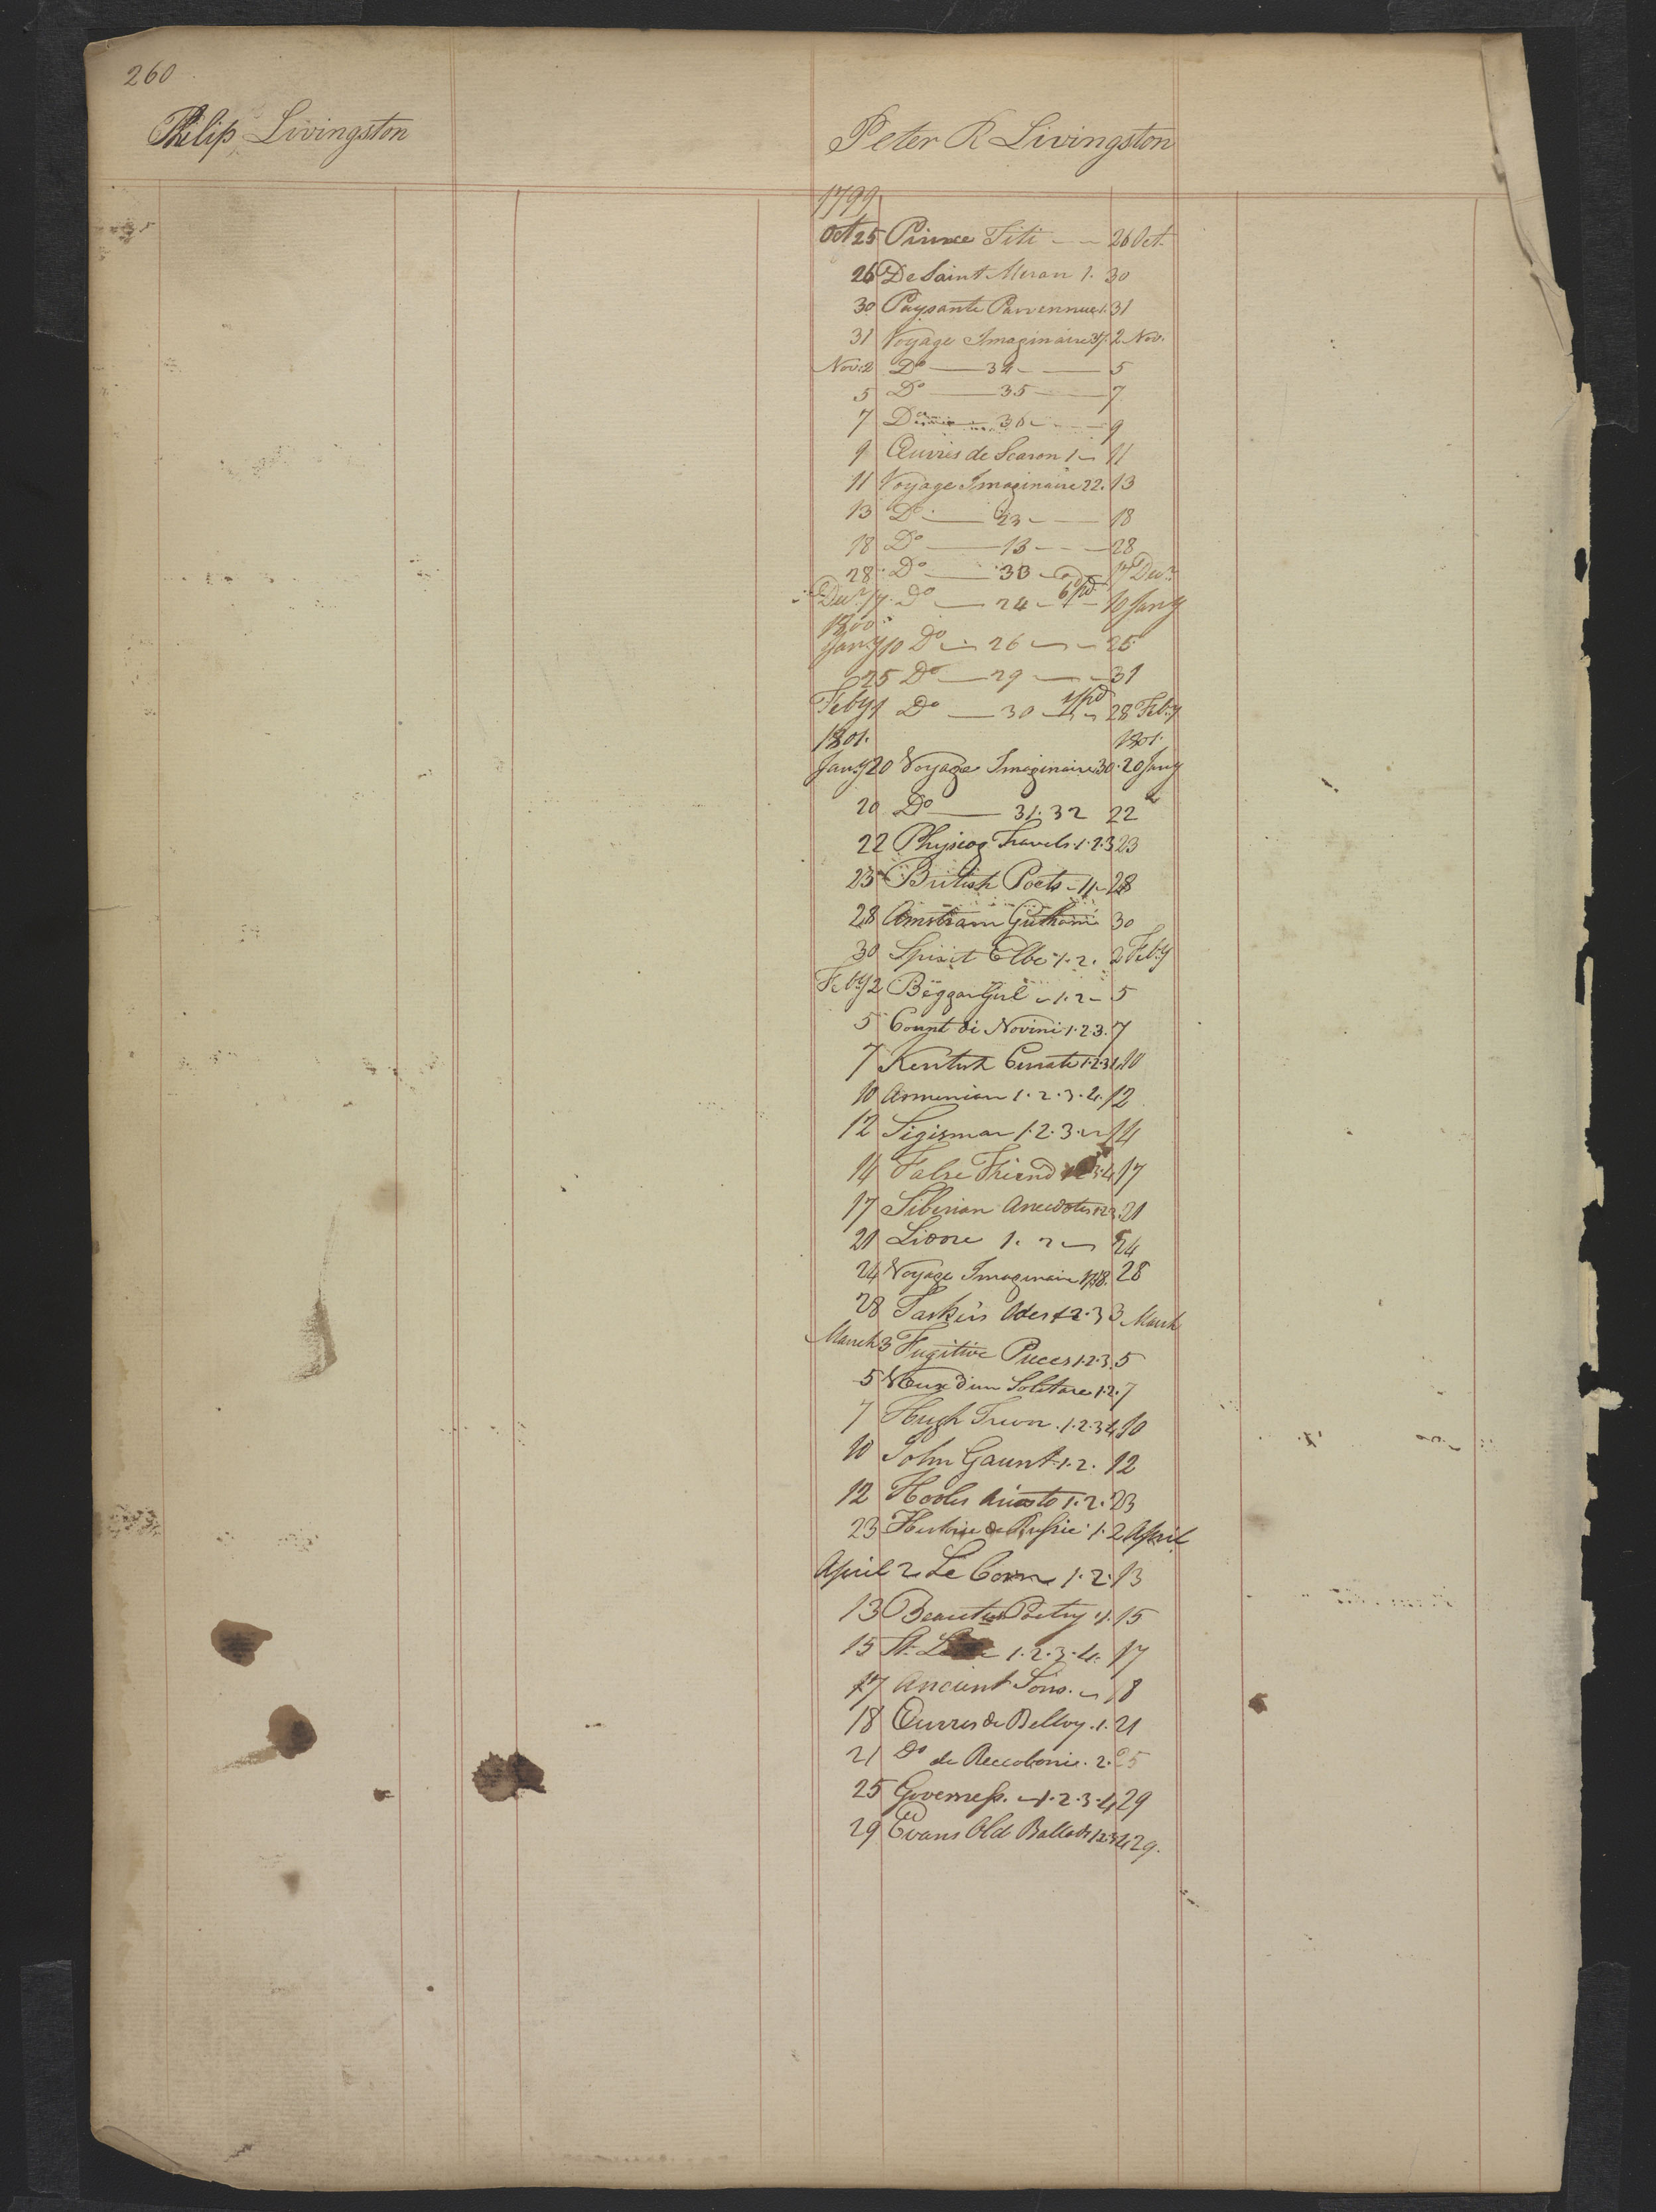 260
Philip Livingston
Peter R Livingston
1799
Oct 25 Prince Titi - - 26 Oct.
26 De Saint Meran 1. 30
30 Paysante Parvennue 1. 31
31 Voyage Imaginaire 2 Nov.
Nov. 2 Do — 34 - — 5
5 Do — 35 — 7
7 Do — 36 - — 9
9 Œuvres de Scaron 1 - 11
11 Voyage Imaginaire 22. 13
13 Do — 23 - — 18
18 Do — 13 - - 28
28 Do — 33 - 17 Decr
Decr 17 Do — 24 - 6/pd - 10 Jany
1800
Jany 10 Do - 26 - - 25
25 Do — 29 — - 31
Feby 1 Do — 30 - 1/pd 28 Feby
1801. 1801.
Jany 20 Voyage Imaginaire 30. 20 Jany
20 Do — 31. 32 22
22 Physiog Travels 1. 2. 3 23
23 British Poets - 11 - 28
28 30
30 Spirit Elbe 1. 2. 2 Feby
Feby 2 Beggar Girl - 1. 2 - 5
5 Count di Novini 1. 2. 3. 7
7 Kentish Curate 1. 2. 3 4 10
10 Armenian 1. 2. 3. 4. 12
12 Sigismar 1. 2. 3. - 14
14 False Friend 3. 4 17
17 Siberian Anecdotes 1 2 3. 21
21 Lidore 1. 2 - 24
24 Voyage Imaginaire 28
28 Taskers Odes 1 2. 3 3 March
March 3 Fugitive Pieces 1. 2. 3. 5
5 Vœux d'un Solitare 1. 2. 7
7 Hugh Trevor. 1. 2. 3 4 10
10 John Gaunt. 1. 2. 12
12 Hooles Ariosto 1. 2. 23
23 Histoire de Russie 1. 2 April
April 2 Le 1. 2. 13
13 Beauties Poetry 1. 15
15 St. 1. 2. 3. 4. 17
17 Ancient Song. - 18
18 Œuvres de Belloy. 1. 21
21 Do de Reccobonie. 2. 25
25 Governess. - 1. 2. 3. 4 29
29 Evans Old Ballads 1 2 3 4 29.